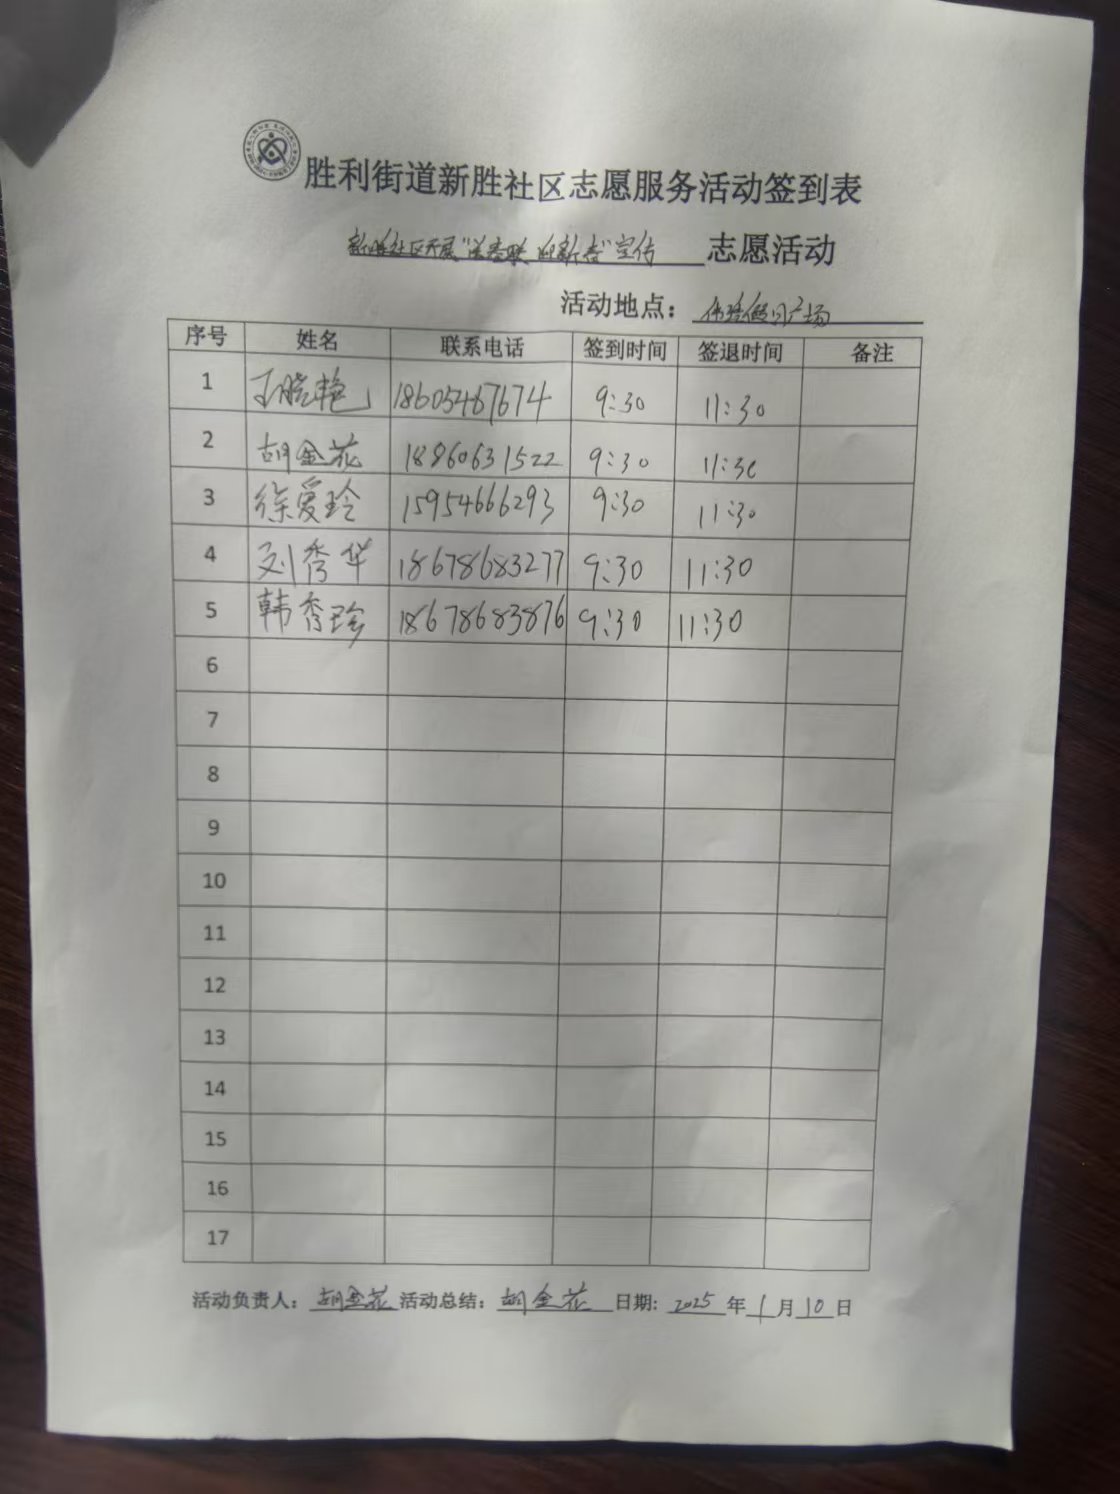 胜利街道新胜社区志愿服务活动签到表
新胜社区开展"送春联 迎新春"宣传 志愿活动
活动地点： 假日广场
序号 姓名 联系电话 签到时间 签退时间 备注
1 王晓艳 18605467674 9:30 11:30
2 胡金花 18860631522 9:30 11:30
3 徐爱玲 15954666293 9:30 11:30
4 刘秀华 18678683277 9:30 11:30
5 韩秀珍 18678683876 9:30 11:30
6
7
8
9
10
11
12
13
14
15
16
17
活动负责人： 胡金花 活动总结： 胡金花 日期: 2025 年 1 月 10 日